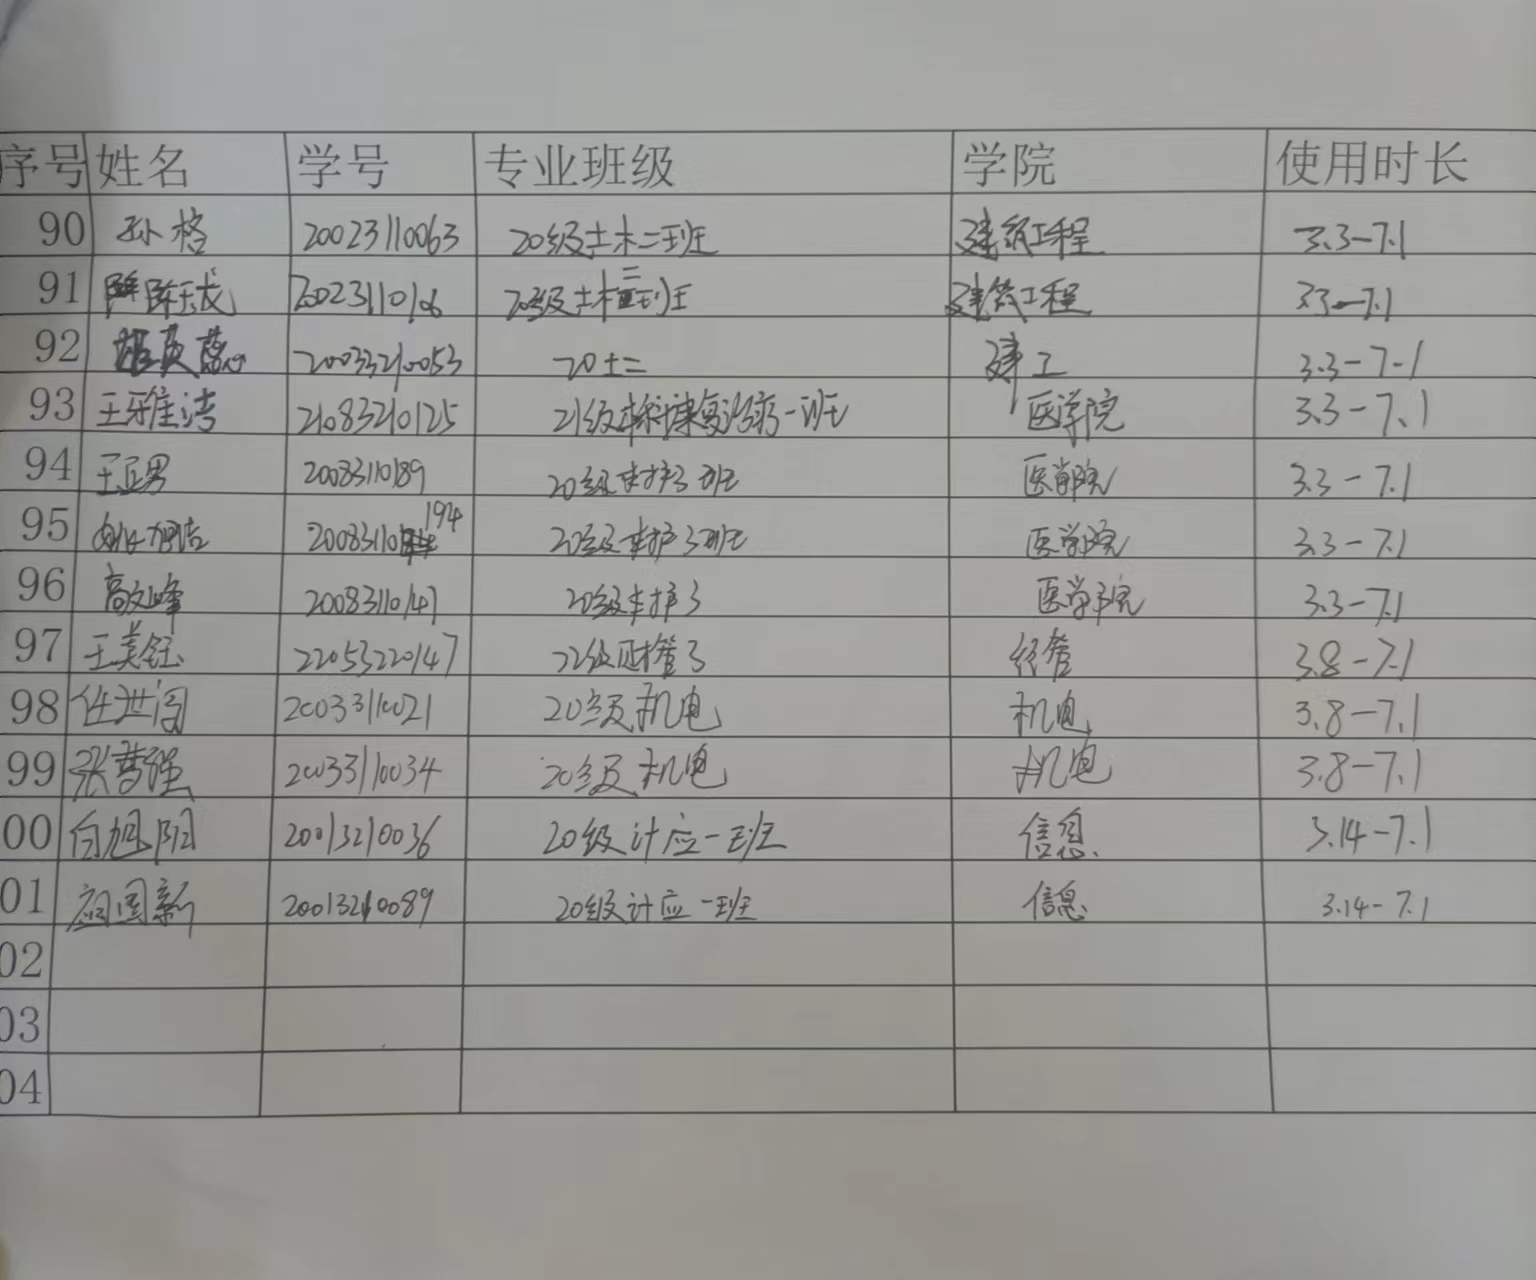 序号 姓名 学号 专业班级 学院 使用时长
90 孙格 20023110063 20级土木二班 建筑工程 3.3-7.1
91 陈玉成 20023110106 20级土木二班 建筑工程 3.3-7.1
92 20033210053 20土二 建工 3.3-7.1
93 王雅洁 21083210125 21级本科康复治疗一班 医学院 3.3-7.1
94 王亚男 20083110189 20级本护3班 医学院 3.3-7.1
95 20083110194 20级本护3班 医学院 3.3-7.1
96 高文峰 20083110147 20级本护3 医学院 3.3-7.1
97 王美钰 22053220147 22级财管3 经管 3.8-7.1
98 任世闯 20033110021 20级机电 机电 3.8-7.1
99 张梦强 20033110034 20级机电 机电 3.8-7.1
00 白旭阳 20013210036 20级计应一班 信息 3.14-7.1
01 国新 20013210089 20级计应一班 信息 3.14-7.1
02
03
04